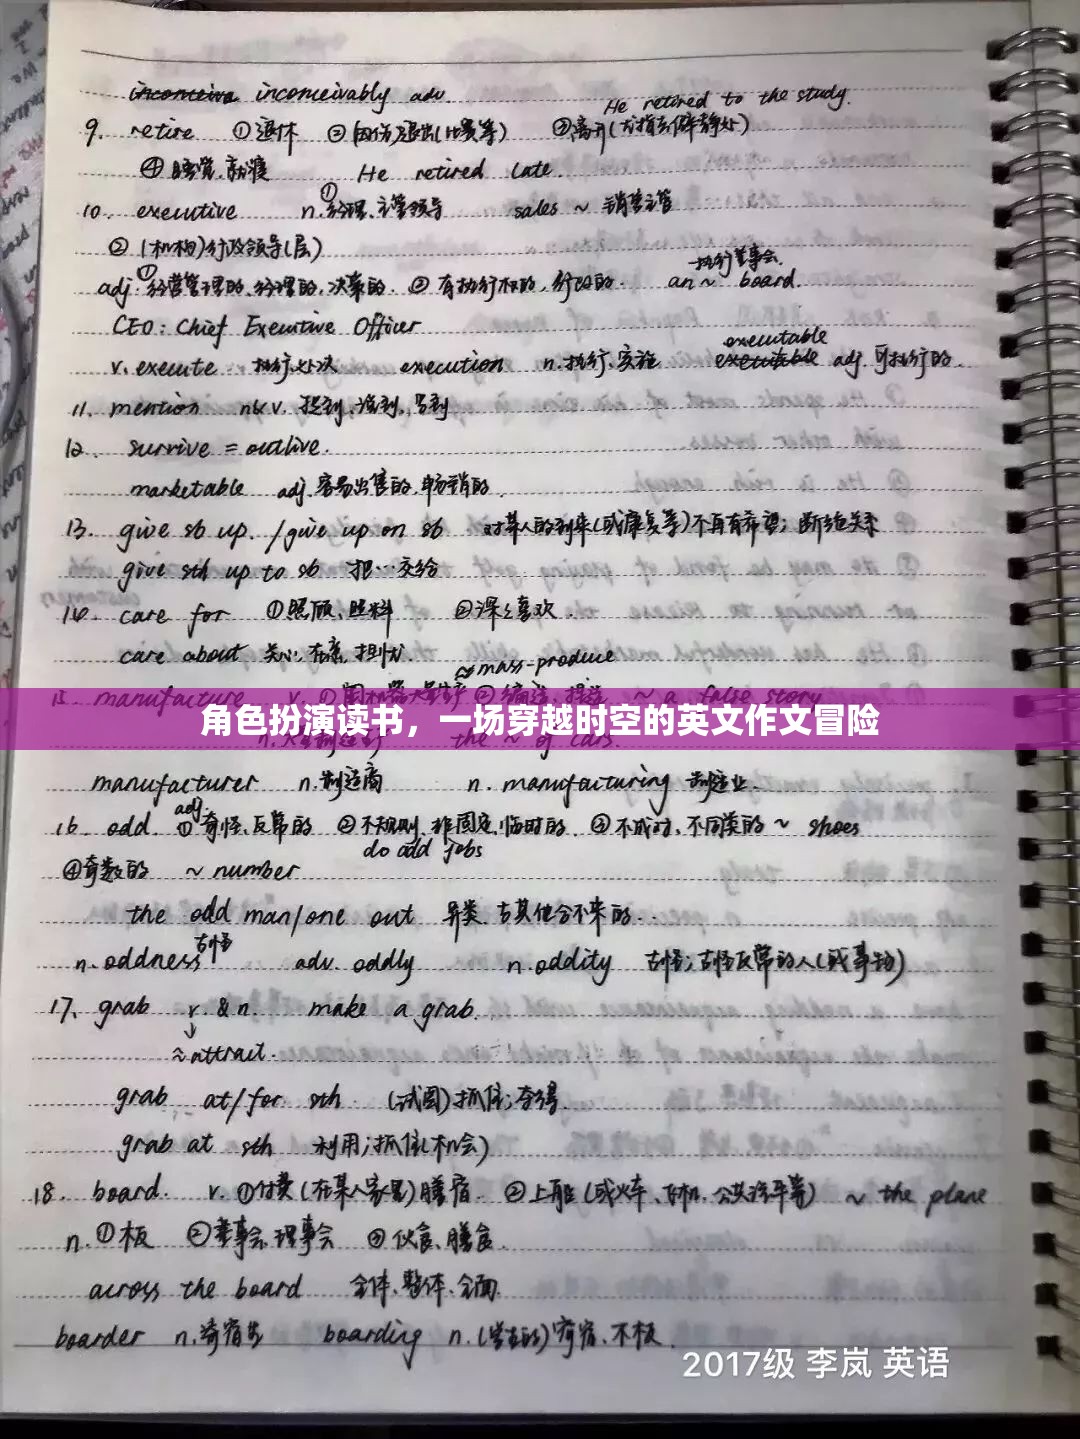 inconceiva inconceivably adv.
He retired to the study.
9. retire ①退休 ②因伤退出(比赛等) ③离开(尤指去僻静处)
④睡觉,就寝 He retired late.
10. executive n.①经理,主管领导 sales ~ 销售主管
②(机构)行政领导(层)
执行董事会
adj.①经营管理的,经理的,决策的. ②有执行权的,行政的. an ~ board.
CEO: Chief Executive Officer
executable
v. execute 执行,处决 execution n.执行,实施 adj.可执行的.
11. mention n&v. 提到,谈到,写到
12. survive = outlive.
marketable adj.容易出售的,畅销的.
13. give sb up. /give up on sb 对某人的到来(或康复等)不再有希望; 断绝关系
give sth up to sb 把…交给
14. care for ①照顾,照料 ②深深喜欢.
care about 关心,在意,担忧.
≈mass-produce
15. manufacture v. ①用机器大量生产 ②编造,捏造 ~ a false story
角色扮演读书，一场穿越时空的英文作文冒险
n.大量制造 the ~ of cars.
manufacturer n.制造商 n. manufacturing 制造业.
16. odd. adj. ①奇怪,反常的 ②不规则,非固定,临时的. ③不成对,不同类的 ~ shoes
do odd jobs
④奇数的 ~ number
the odd man/one out 异类,与其他合不来的…
n. oddness 古怪 adv. oddly n. oddity 古怪;古怪反常的人(或事物)
17. grab v. & n. make a grab.
≈attract.
grab at/for sth (试图)抓住;夺得.
grab at sth 利用;抓住(机会)
18. board. v. ①付费(在某人家里)膳宿. ②上船(或火车、飞机、公共汽车等) ~ the plane
n. ①板 ②董事会,理事会 ③伙食、膳食.
across the board 全体、整体、全面.
boarder n.寄宿生 boarding n.(学生的)寄宿、木板.
2017级 李岚 英语